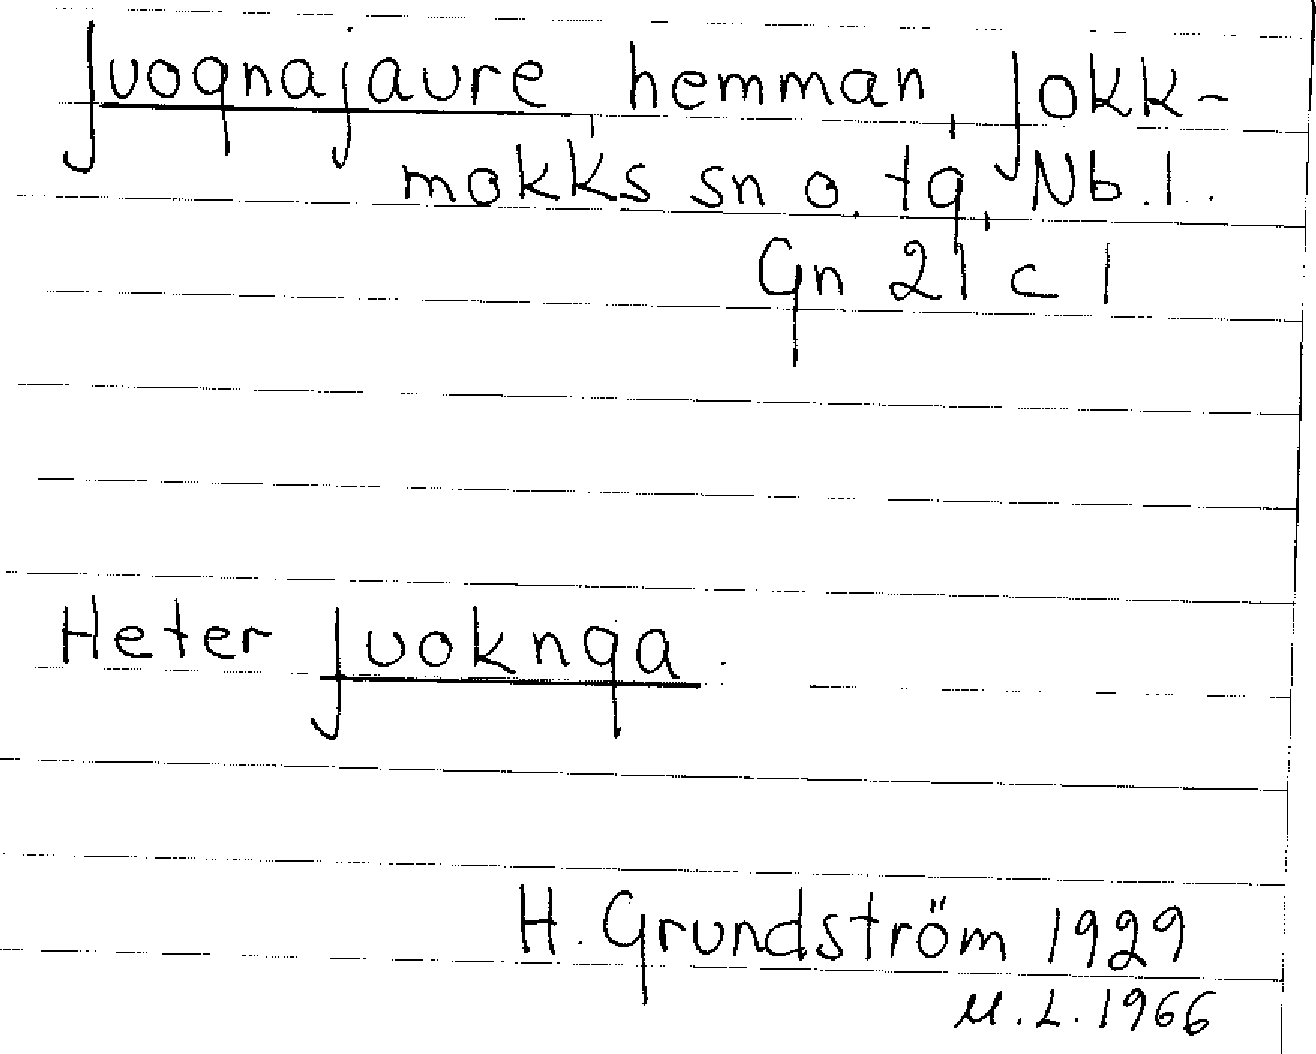 Juognajaure, hemman, Jokk-
mokks sn o. tg, Nb. l.
Gn 21 c 1
Heter Juoknga.
H. Grundström 1929
M. L. 1966